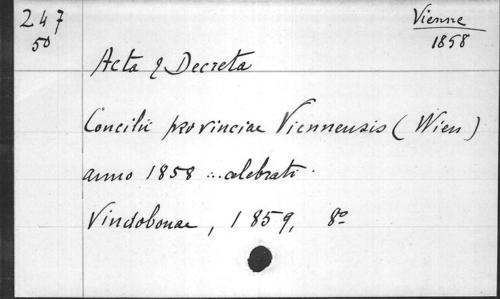 247
50
Vienne
1858
Acta & Decreta
Concilii provinciae Viennensis (Wien)
anno 1858 ... celebrati.
Vindobonae, 1859, 8º